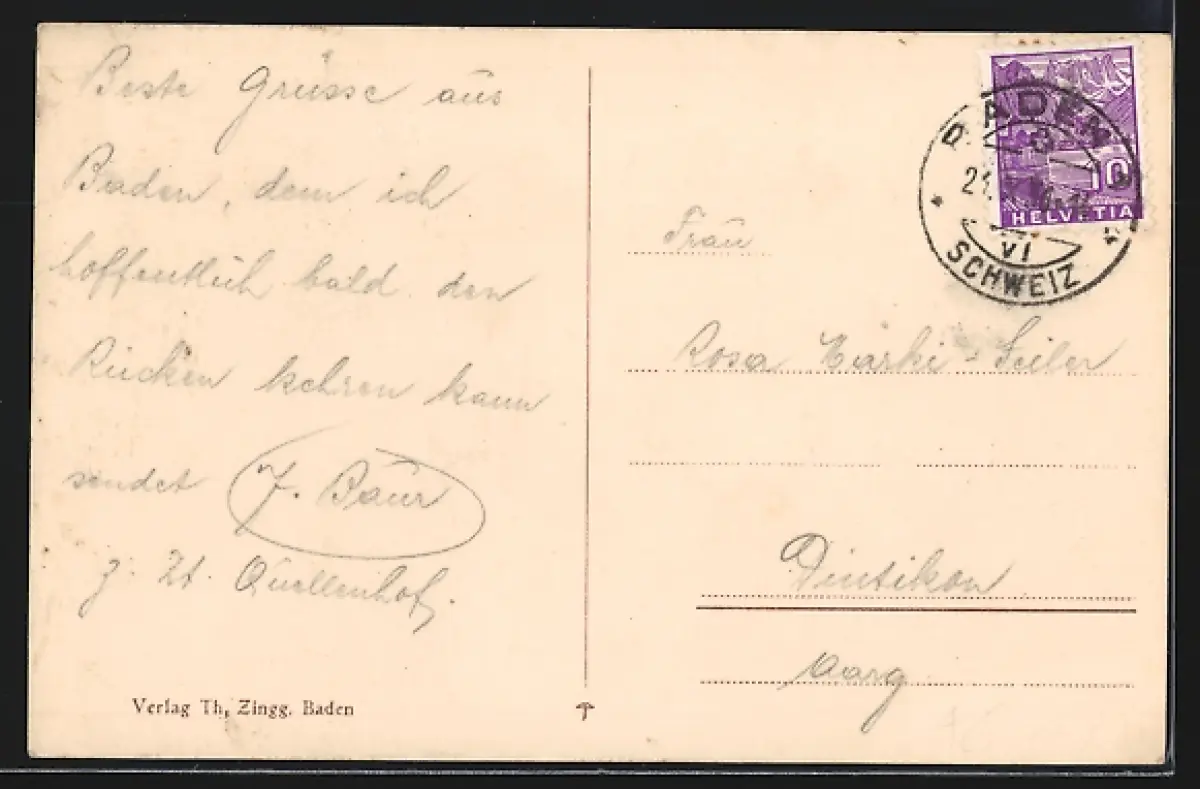 Beste Grüsse aus
Baden, dem ich
hoffentlich bald den
Rücken kehren kann
sendet J. Baur
z. Zt. Quellenhof.
Verlag Th. Zingg. Baden
BADEN
3
21.
VI
SCHWEIZ
10
HELVETIA
Frau
Rosa Märki-Seiler
Dintikon
Aarg.